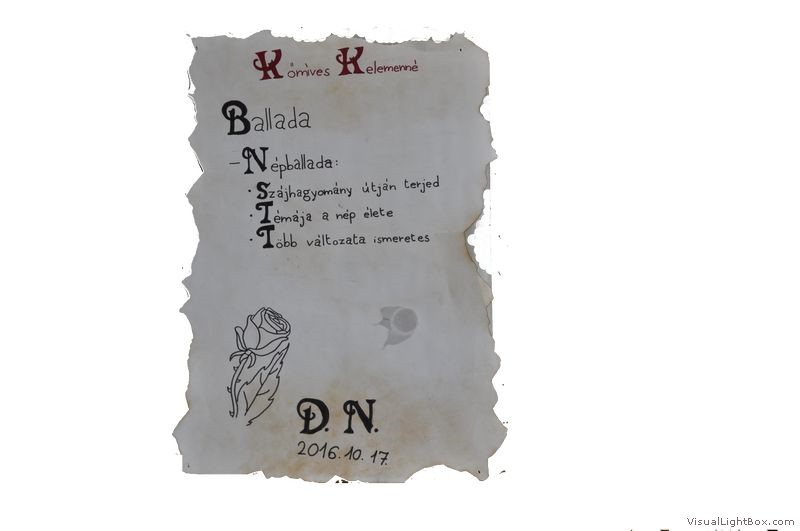 Kőmíves Kelemenné
Ballada
– Népballada:
· Szájhagyomány útján terjed
· Témája a nép élete
· Több változata ismeretes
D. N.
2016.10.17.
VisualLightBox.com